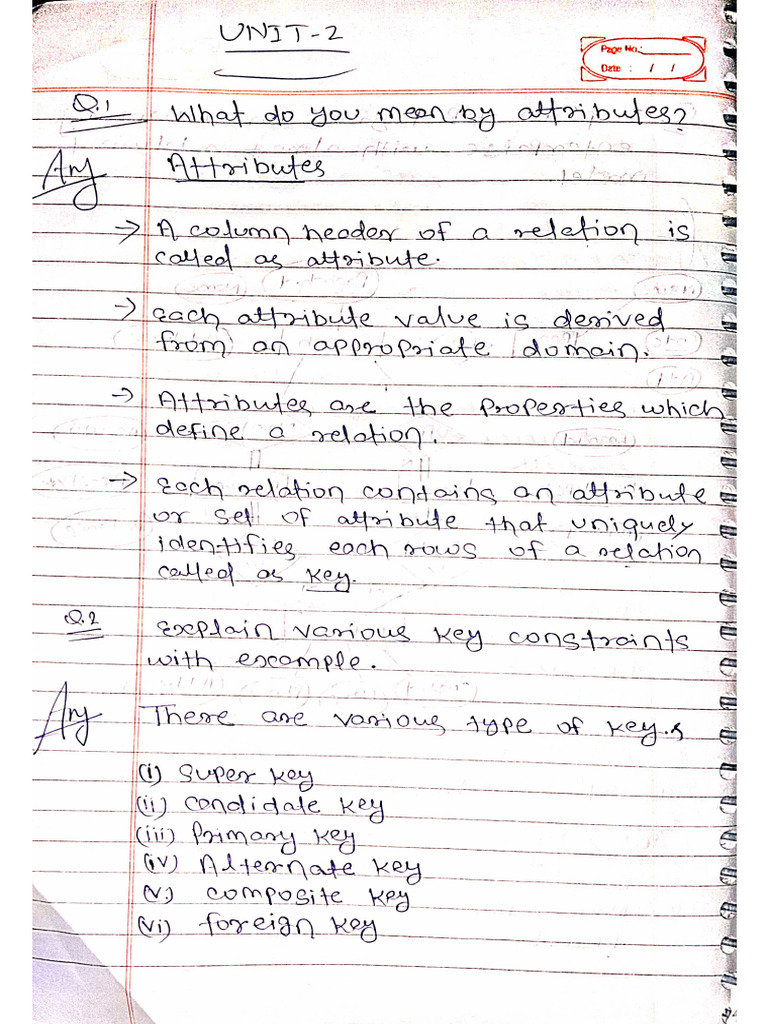 UNIT-2
Page No.:
Date : / /
Q.1 What do you mean by attributes?
Ans Attributes
→ A column header of a relation is
called as attribute.
→ Each attribute value is derived
from an appropriate domain.
→ Attributes are the properties which
define a relation.
→ Each relation contains an attribute
or set of attribute that uniquely
identifies each rows of a relation
called as key.
Q.2 Explain various key constraints
with example.
Ans There are various type of key.s
(i) Super key
(ii) Candidate key
(iii) Primary key
(iv) Alternate key
(v.) composite key
(vi) foreign key